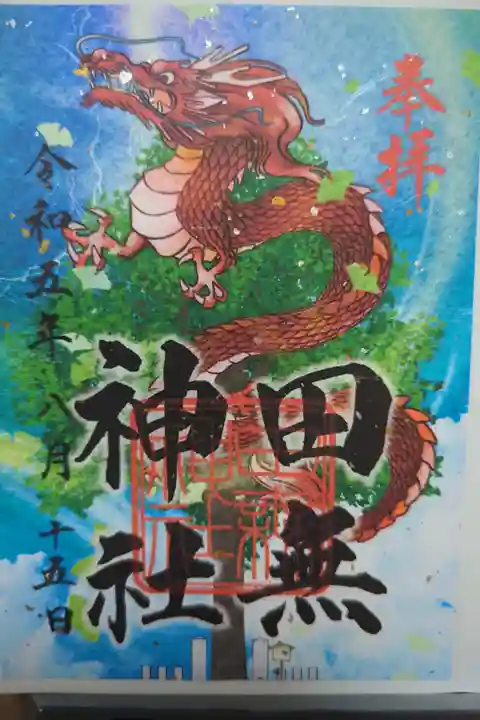 奉拝
田無
神社
令和五年八月十五日